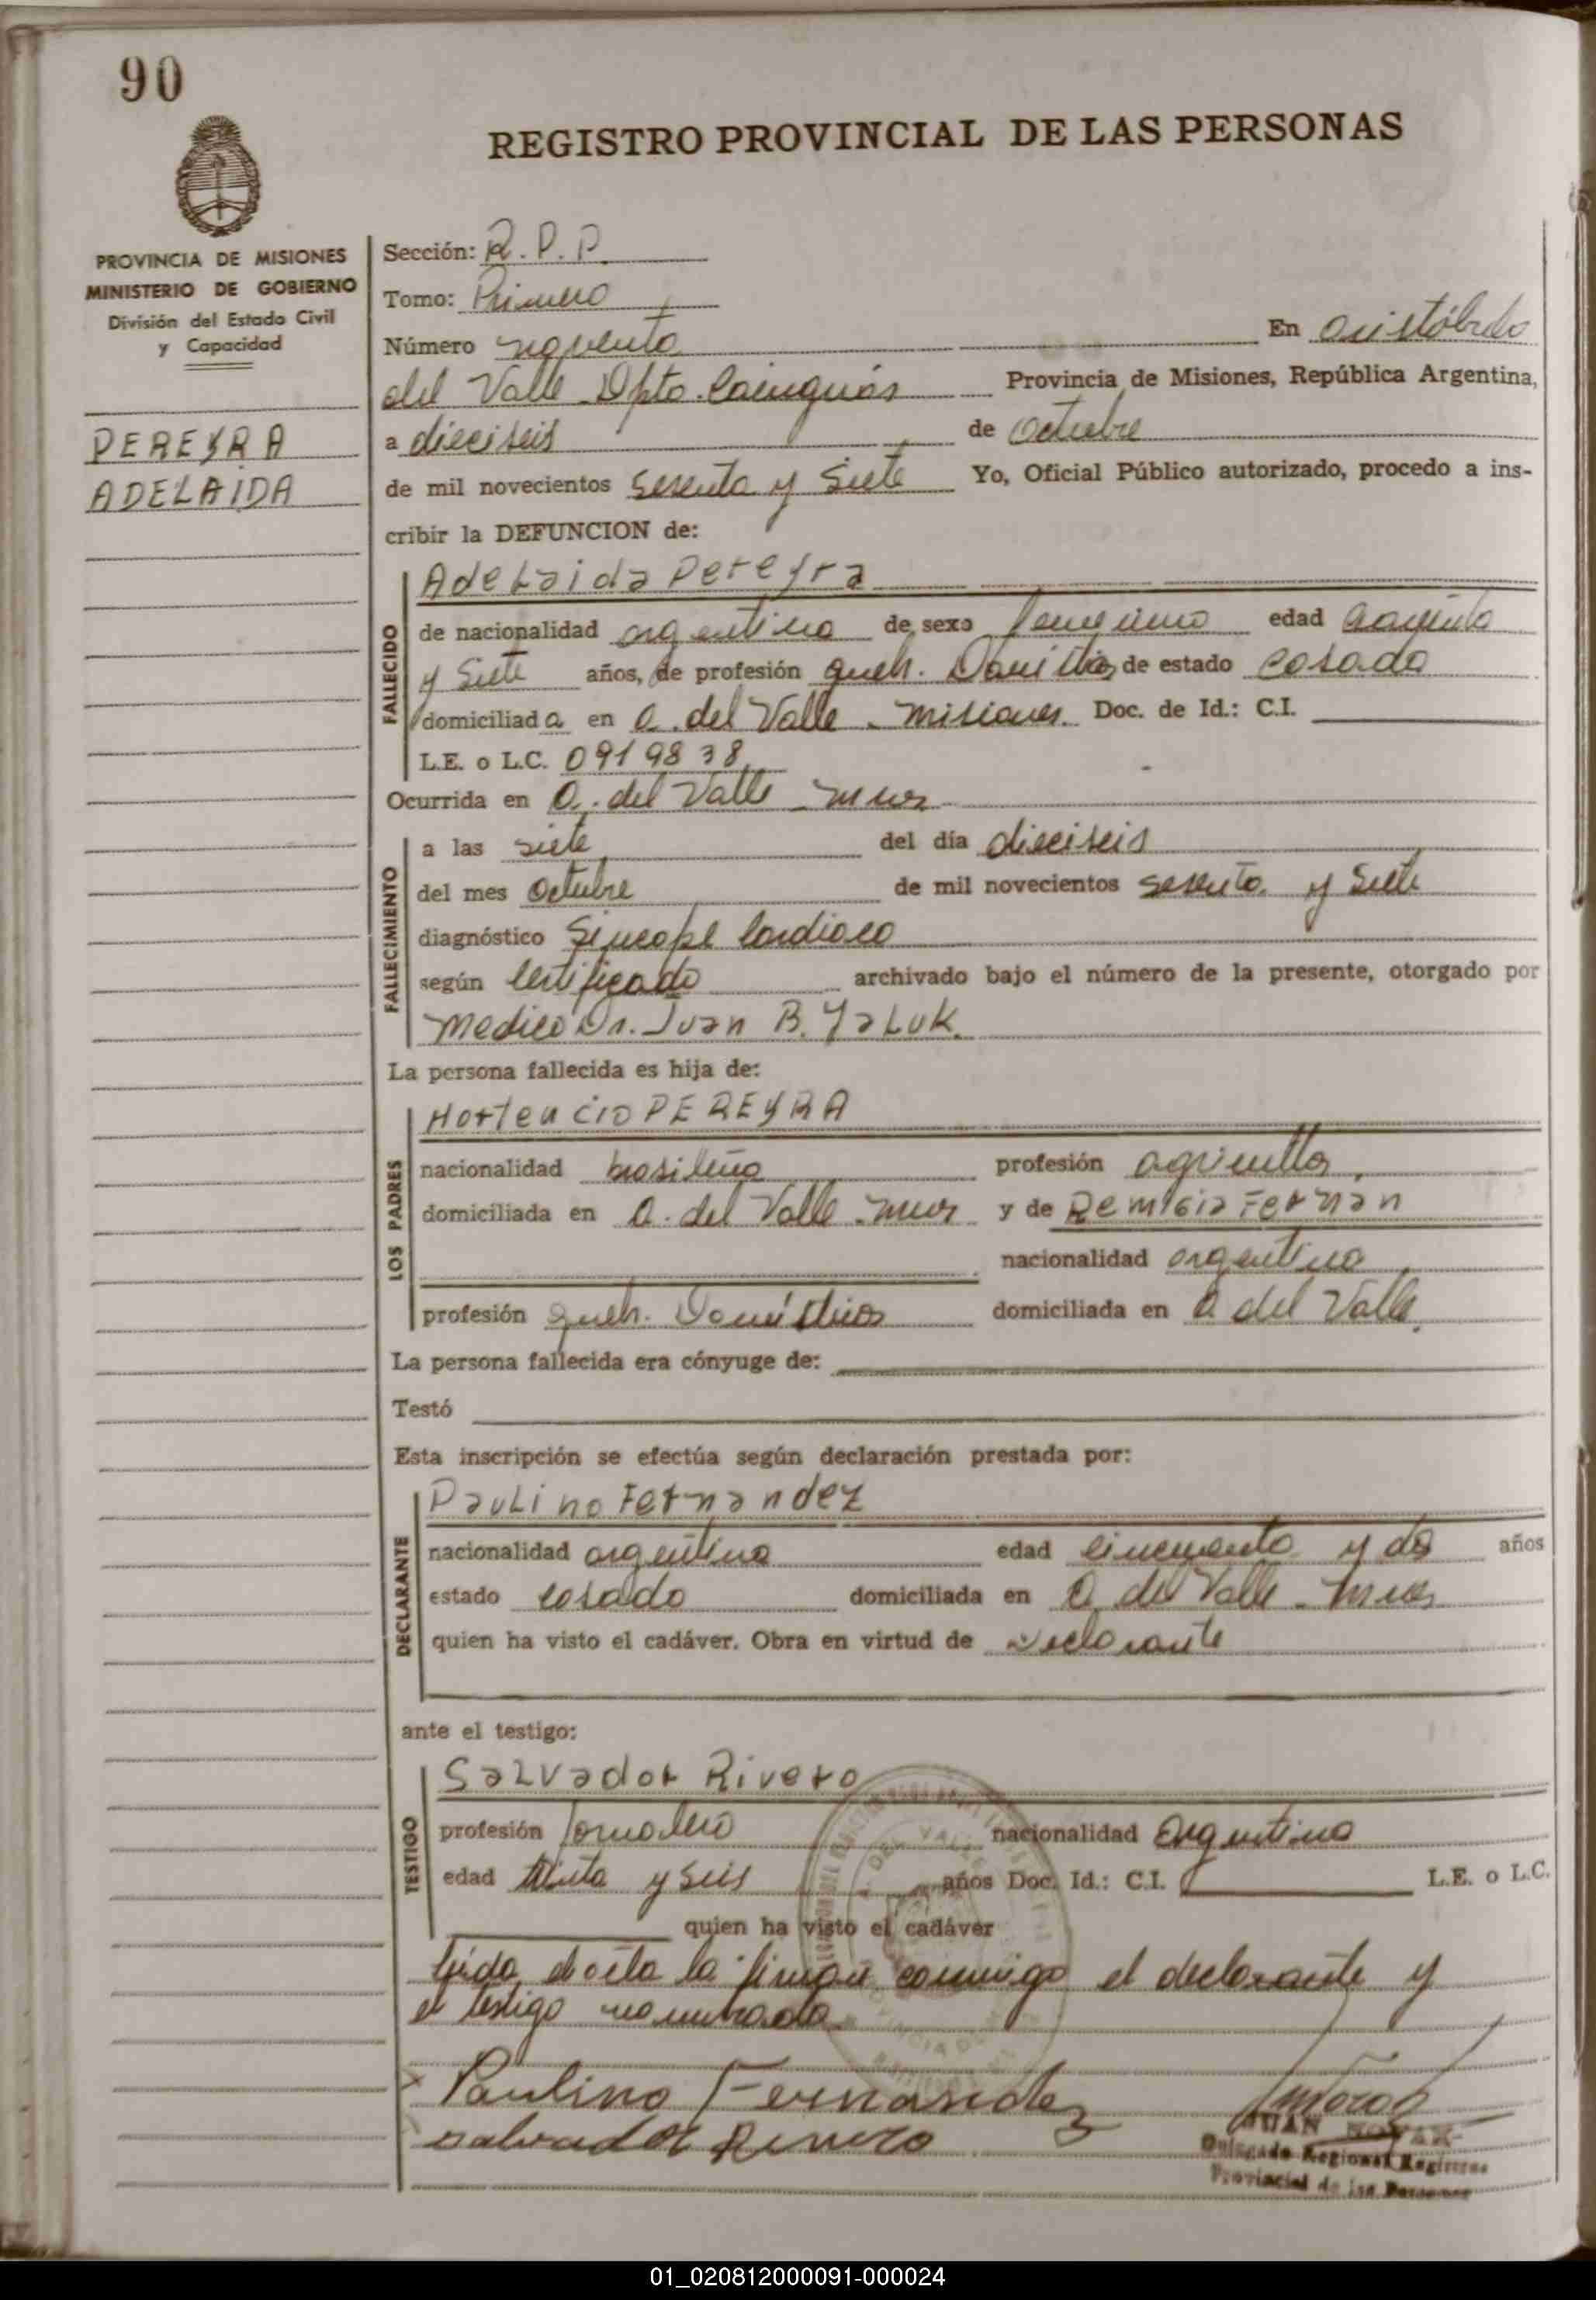 90
REGISTRO PROVINCIAL DE LAS PERSONAS
PROVINCIA DE MISIONES
MINISTERIO DE GOBIERNO
División del Estado Civil
y Capacidad
PEREYRA
ADELAIDA
Sección: R. P. P.
Tomo: Primero
Número noventa En Aristóbulo
del Valle Dpto. Cainguás Provincia de Misiones, República Argentina,
a dieciseis de Octubre
de mil novecientos sesenta y Siete Yo, Oficial Público autorizado, procedo a ins-
cribir la DEFUNCION de:
FALLECIDO
Adelaida Pereyra
de nacionalidad argentina de sexo femenino edad
y Siete años, de profesión queh. Domésticos de estado casada
domiciliada en A. del Valle - Misiones. Doc. de Id.: C.I.
L.E. o L.C. 0919838
Ocurrida en A. del Valle - Mnes
FALLECIMIENTO
a las siete del día dieciseis
del mes Octubre de mil novecientos sesenta y Siete
diagnóstico Sincope Cardiaco
según Certificado archivado bajo el número de la presente, otorgado por
Medico Dr. Juan B. Yaluk.
La persona fallecida es hija de:
LOS PADRES
Hortencio PEREYRA
nacionalidad brasileño profesión agricultor
domiciliada en A. del Valle - Mnes y de Remigia Fernan
nacionalidad argentina
profesión queh. Domésticos domiciliada en A del Valle.
La persona fallecida era cónyuge de:
Testó
Esta inscripción se efectúa según declaración prestada por:
DECLARANTE
Paulino Fernandez
nacionalidad argentino edad cincuenta y dos años
estado casado domiciliada en A. del Valle - Mnes
quien ha visto el cadáver. Obra en virtud de declarante
ante el testigo:
TESTIGO
Salvador Rivero
profesión Jornalero nacionalidad Argentina
edad treinta y seis años Doc. Id.: C.I. L.E. o L.C.
quien ha visto el cadáver
leída el acta la firman conmigo el declarante y
el testigo nombrado
Paulino Fernandez
Salvador Rivero
JUAN NOVAK
Delegado Regional Registro
Provincial de las Personas
01_020812000091-000024